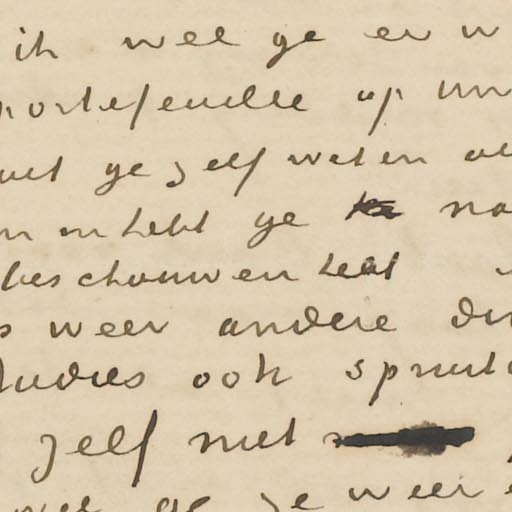 ik wel ge er w
portefeuille op
moet ge zelf weten
en hebt ge na
beschouwen hebt
weer andere din
studies ook spruit
zelf niet
ge ze weer